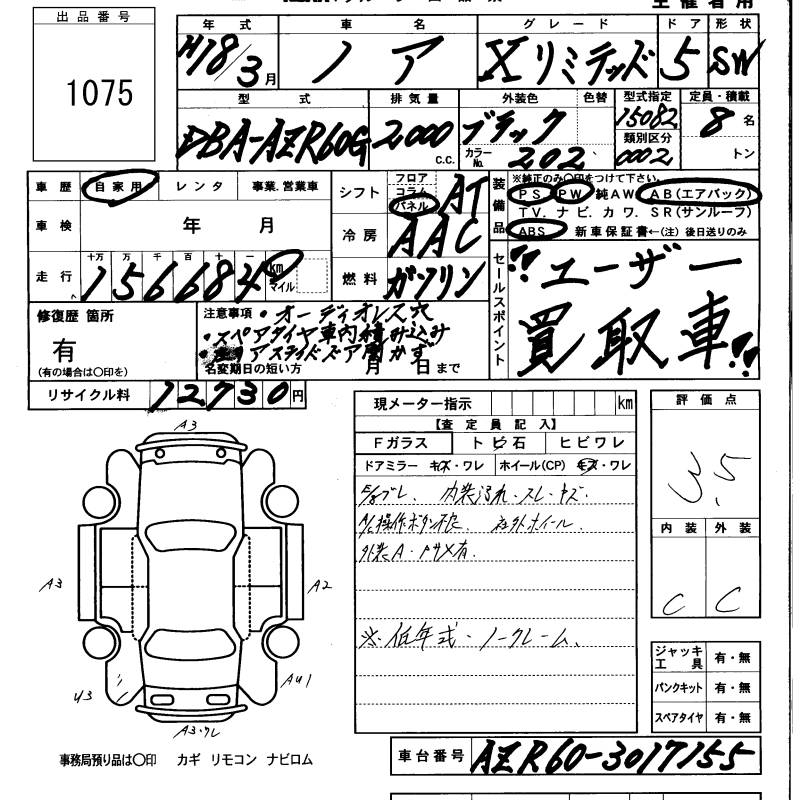 主催者用
出品番号
1075
年式 車名 グレード ドア 形状
H18/3月 ノア Xリミテッド 5 SW
型式 排気量 外装色 色替 型式指定 定員・積載
DBA-AZR60G 2,000 C.C. ブラック 15082 8名
カラーNo. 202 類別区分 0002 トン
車歴 自家用 レンタ 事業.営業車
車検 年 月
走行 十万 万 千 百 十 一
156684 km マイル
シフト フロア コラム パネル AT
冷房 AAC
燃料 ガソリン
装備品 ※純正のみ〇印をつけて下さい。
PS PW 純AW AB(エアバック)
TV. ナビ. カワ. SR(サンルーフ)
ABS 新車保証書←(注) 後日送りのみ
セールスポイント
!!ユーザー
買取車!!
修復歴 箇所
有
(有の場合は〇印を)
注意事項・オーディオレス穴
・スペアタイヤ車内積み込み
リアスライドドア開かず
名変期日の短い方 月 日まで
リサイクル料 12,730円
現メーター指示 km
【査定員記入】
Fガラス トビ石 ヒビワレ
ドアミラー キズ・ワレ ホイール(CP) キズ・ワレ
内装汚れ・スレ・キズ.
A/C操作ボタン不良. 社外ホイール.
外装A・アリメ有.
※低年式・ノークレーム.
評価点
3.5
内装 外装
C C
ジャッキ工具 有・無
パンクキット 有・無
スペアタイヤ 有・無
A3
A3
A2
U3
AU1
A3・ワレ
事務局預り品は〇印 カギ リモコン ナビロム
車台番号 AZR60-3017155